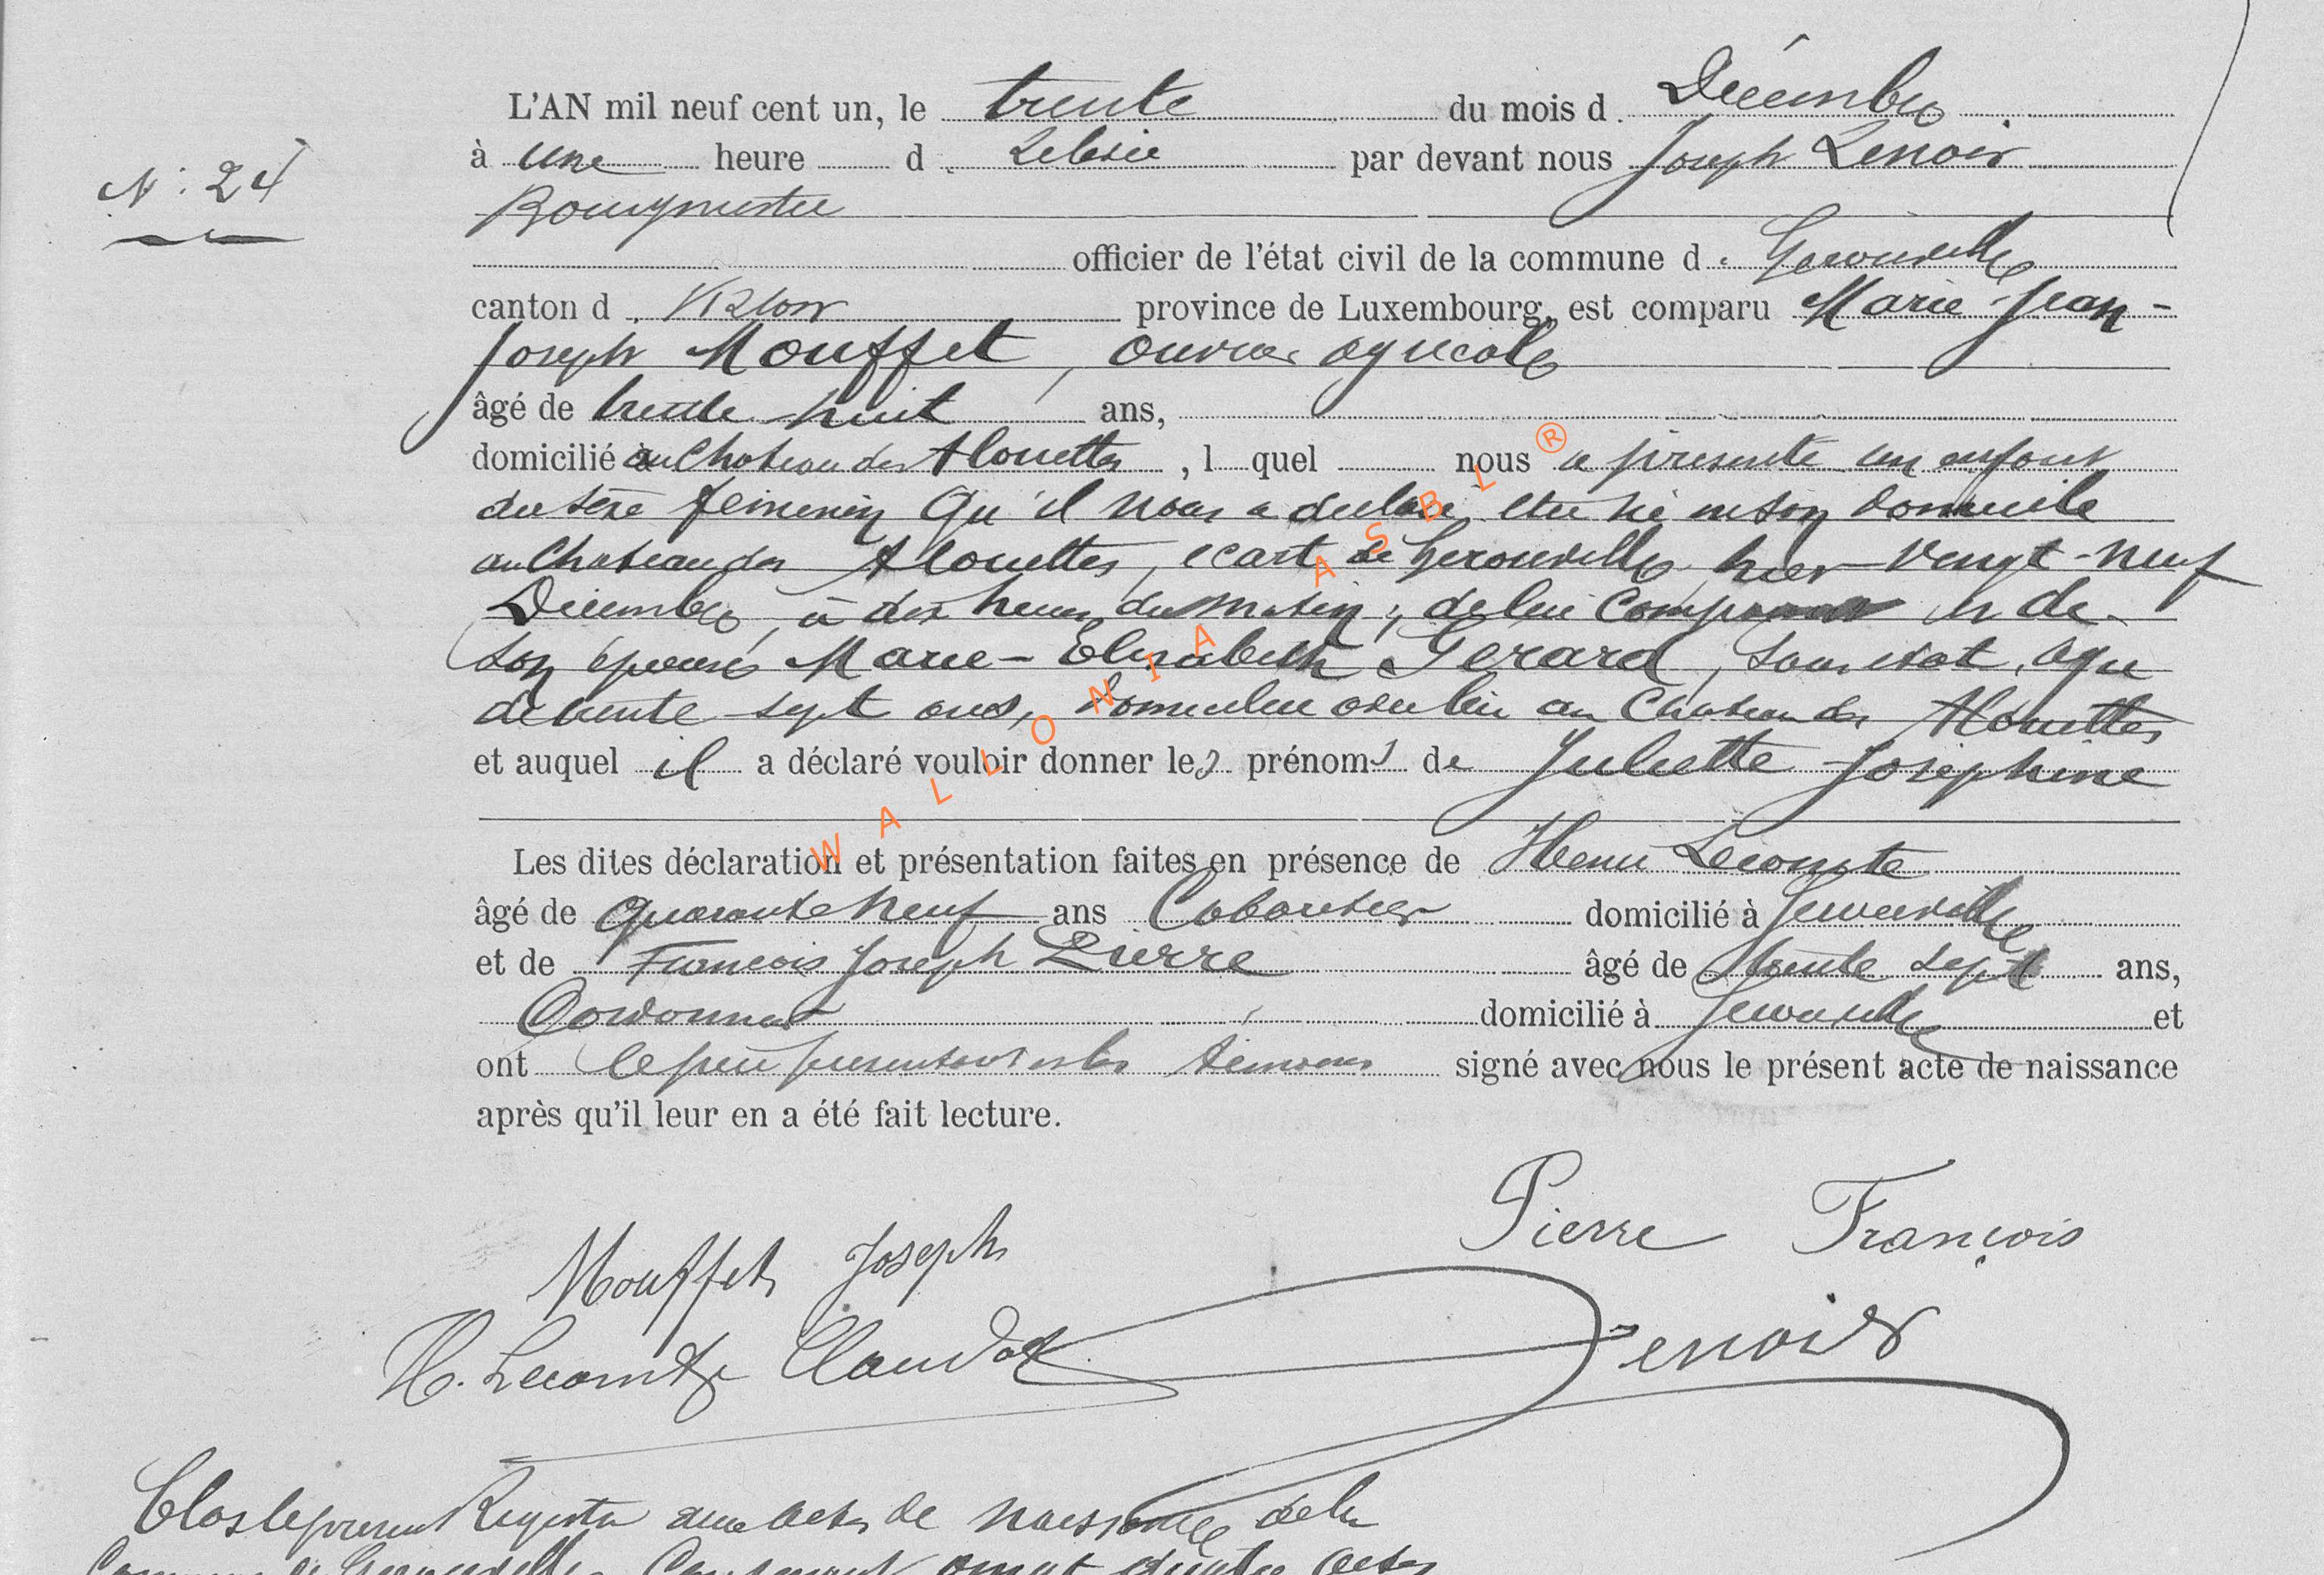 N° 24
L'AN mil neuf cent un, le trente du mois d Décembre
à une heure d par devant nous Joseph Lenoir
Bourgmestre
officier de l'état civil de la commune d Gerouville
canton d Virton province de Luxembourg, est comparu Marie-Jean-
Joseph Mouffet, ouvrier agricole
âgé de trente-huit ans,
domicilié au Chateau des Alouettes, l quel nous a présenté un enfant
du sexe féminin qu'il nous a déclaré être né en son domicile
au Chateau des Alouettes, écart de Gerouville, hier vingt-neuf
Décembre, à dix heures du matin, de lui comparant et de
son épouse Marie-Elisabeth Gerard, sans état, agée
de trente-sept ans, domiciliée avec lui au Chateau des Alouettes
et auquel il a déclaré vouloir donner les prénoms de Juliette Joséphine
Les dites déclaration et présentation faites en présence de Henri Lecomte
âgé de quarante neuf ans Cabaretier domicilié à Gerouville
et de François Joseph Pierre âgé de trente sept ans,
Cordonnier domicilié à Gerouville et
ont le père présentant et les témoins signé avec nous le présent acte de naissance
après qu'il leur en a été fait lecture.
Pierre François
Mouffet Joseph
H. Lecomte Claudot Lenoir
Clos le présent Registre aux actes de naissance de la
Commune de Gerouville, Contenant vingt quatre actes
WALLONIA ASBL ®